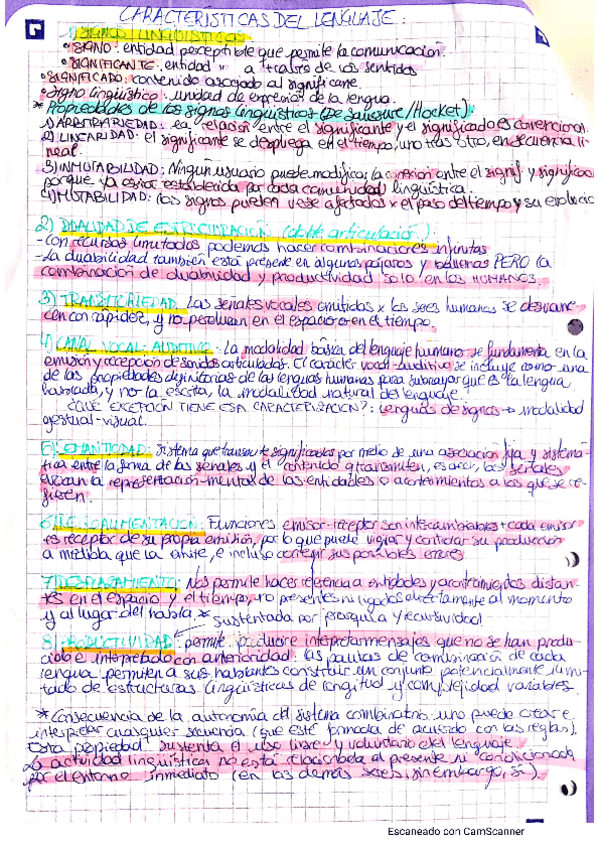 CARACTERÍSTICAS DEL LENGUAJE:
1) SIGNOS LINGÜÍSTICOS
• SIGNO: entidad perceptible que permite la comunicación.
• SIGNIFICANTE: entidad " a través de los sentidos
• SIGNIFICADO: contenido asociado al significante.
• Signo lingüístico: unidad de expresión de la lengua.
* Propiedades de los signos lingüísticos (De Saussure/Hocket):
1) ARBITRARIEDAD: la relación entre el significante y el significado es convencional.
2) LINEARIDAD: el significante se despliega en el tiempo, uno tras otro, en secuencia li-
neal.
3) INMUTABILIDAD: Ningún usuario puede modificar la conexión entre el signif y significado
porque ya están establecida por cada comunidad lingüística.
4) MUTABILIDAD: los signos pueden verse afectados x el paso del tiempo y su evolución
2) DUALIDAD DE ESTRUCTURACIÓN (doble articulación):
- Con recursos limitados podemos hacer combinaciones infinitas
- La duabilidad también está presente en algunos pájaros y ballenas PERO la
combinación de duabilidad y productividad solo en los HUMANOS.
3) TRANSITORIEDAD. Las señales vocales emitidas x los seres humanos se desvane-
cen con rapidez, y no perduran en el espacio o en el tiempo.
4) CANAL VOCAL-AUDITIVO: La modalidad básica del lenguaje humano se fundamenta en la
emisión y recepción de sonidos articulados. El carácter vocal-auditivo se incluye como una
de las propiedades definitorias de las lenguas humanas para subrayar que es la lengua
hablada, y no la escrita, la modalidad natural del lenguaje.
¿QUÉ EXCEPCIÓN TIENE ESA CARACTERIZACIÓN?: Lenguas de signos → modalidad
gestual-visual.
5) SEMANTICIDAD: Sistema que transmite significados por medio de una asociación fija y sistemá-
tica entre la forma de las señales y el contenido q transmiten, es decir, las señales
evocan la representación mental de las entidades o acontecimientos a los que se re-
fieren.
6) RETROALIMENTACIÓN: Funciones emisor-receptor son intercambiables + cada emisor
es receptor de su propia emisión, por lo que puede vigilar y controlar su producción
a medida que la emite, e incluso corregir sus posibles errores
7) DESPLAZAMIENTO: Nos permite hacer referencia a entidades y acontecimientos distan-
tes en el espacio y el tiempo, no presentes ni ligados directamente al momento
y al lugar del habla. * sustentada por jerarquía y recursividad
8) PRODUCTIVIDAD: permite producir e interpretar mensajes que no se han produ-
cido e interpretado con anterioridad: las pautas de combinación de cada
lengua permiten a sus hablantes construir un conjunto potencialmente ilimi-
tado de estructuras lingüísticas de longitud y complejidad variables.
* Consecuencia de la autonomía del sistema combinatorio: uno puede crear e
interpretar cualquier secuencia (que esté formada de acuerdo con las reglas).
Esta propiedad sustenta el uso libre y voluntario del lenguaje.
La actividad lingüística no está relacionada al presente ni condicionada
por el entorno inmediato (en los demás seres, sin embargo, sí).
Escaneado con CamScanner